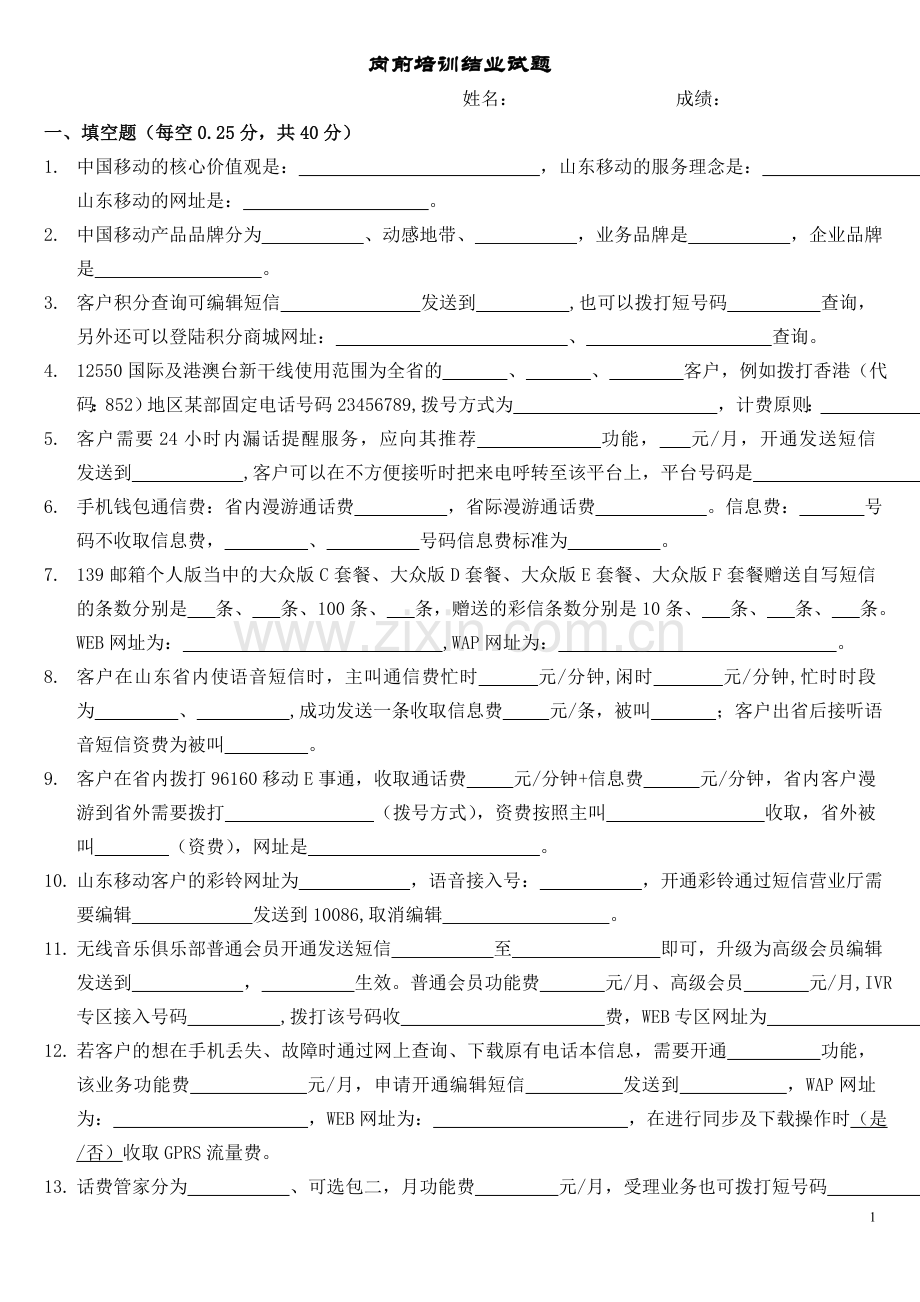 岗前培训结业试题
姓名：                成绩：
一、填空题（每空0.25分，共40分）
1. 中国移动的核心价值观是：__________________________，山东移动的服务理念是：_________________
山东移动的网址是：____________________。
2. 中国移动产品品牌分为___________、动感地带、___________，业务品牌是___________，企业品牌
是__________________。
3. 客户积分查询可编辑短信_______________发送到__________,也可以拨打短号码__________查询，
另外还可以登陆积分商城网址：_________________________、____________________查询。
4. 12550国际及港澳台新干线使用范围为全省的_______、_______、_________客户，例如拨打香港（代
码：852）地区某部固定电话号码23456789,拨号方式为______________________，计费原则：___________
5. 客户需要24小时内漏话提醒服务，应向其推荐_____________功能，___元/月，开通发送短信
发送到____________,客户可以在不方便接听时把来电呼转至该平台上，平台号码是__________________
6. 手机钱包通信费：省内漫游通话费__________，省际漫游通话费____________。信息费：_______号
码不收取信息费，_________、__________号码信息费标准为__________。
7. 139邮箱个人版当中的大众版C套餐、大众版D套餐、大众版E套餐、大众版F套餐赠送自写短信
的条数分别是___条、___条、100条、___条，赠送的彩信条数分别是10条、___条、___条、___条。
www.zixin.com.cn
WEB网址为：____________________________,WAP网址为：______________________________。
8. 客户在山东省内使语音短信时，主叫通信费忙时______元/分钟,闲时_______元/分钟,忙时时段
为_________、__________,成功发送一条收取信息费_____元/条，被叫_______；客户出省后接听语
音短信资费为被叫_________。
9. 客户在省内拨打96160移动E事通，收取通话费_____元/分钟+信息费______元/分钟，省内客户漫
游到省外需要拨打________________（拨号方式），资费按照主叫_________________收取，省外被
叫________（资费），网址是_________________________。
10. 山东移动客户的彩铃网址为____________，语音接入号：___________，开通彩铃通过短信营业厅需
要编辑_____________发送到10086,取消编辑__________________。
11. 无线音乐俱乐部普通会员开通发送短信___________至________________即可，升级为高级会员编辑
发送到____________，__________生效。普通会员功能费_______元/月、高级会员_______元/月,IVR
专区接入号码__________,拨打该号码收______________________费，WEB专区网址为________________
12. 若客户的想在手机丢失、故障时通过网上查询、下载原有电话本信息，需要开通__________功能，
该业务功能费____________元/月，申请开通编辑短信__________发送到____________，WAP网址
为：_____________________，WEB网址为：_____________________，在进行同步及下载操作时（是
/否）收取GPRS流量费。
13. 话费管家分为___________、可选包二，月功能费_________元/月，受理业务也可拨打短号码__________
1